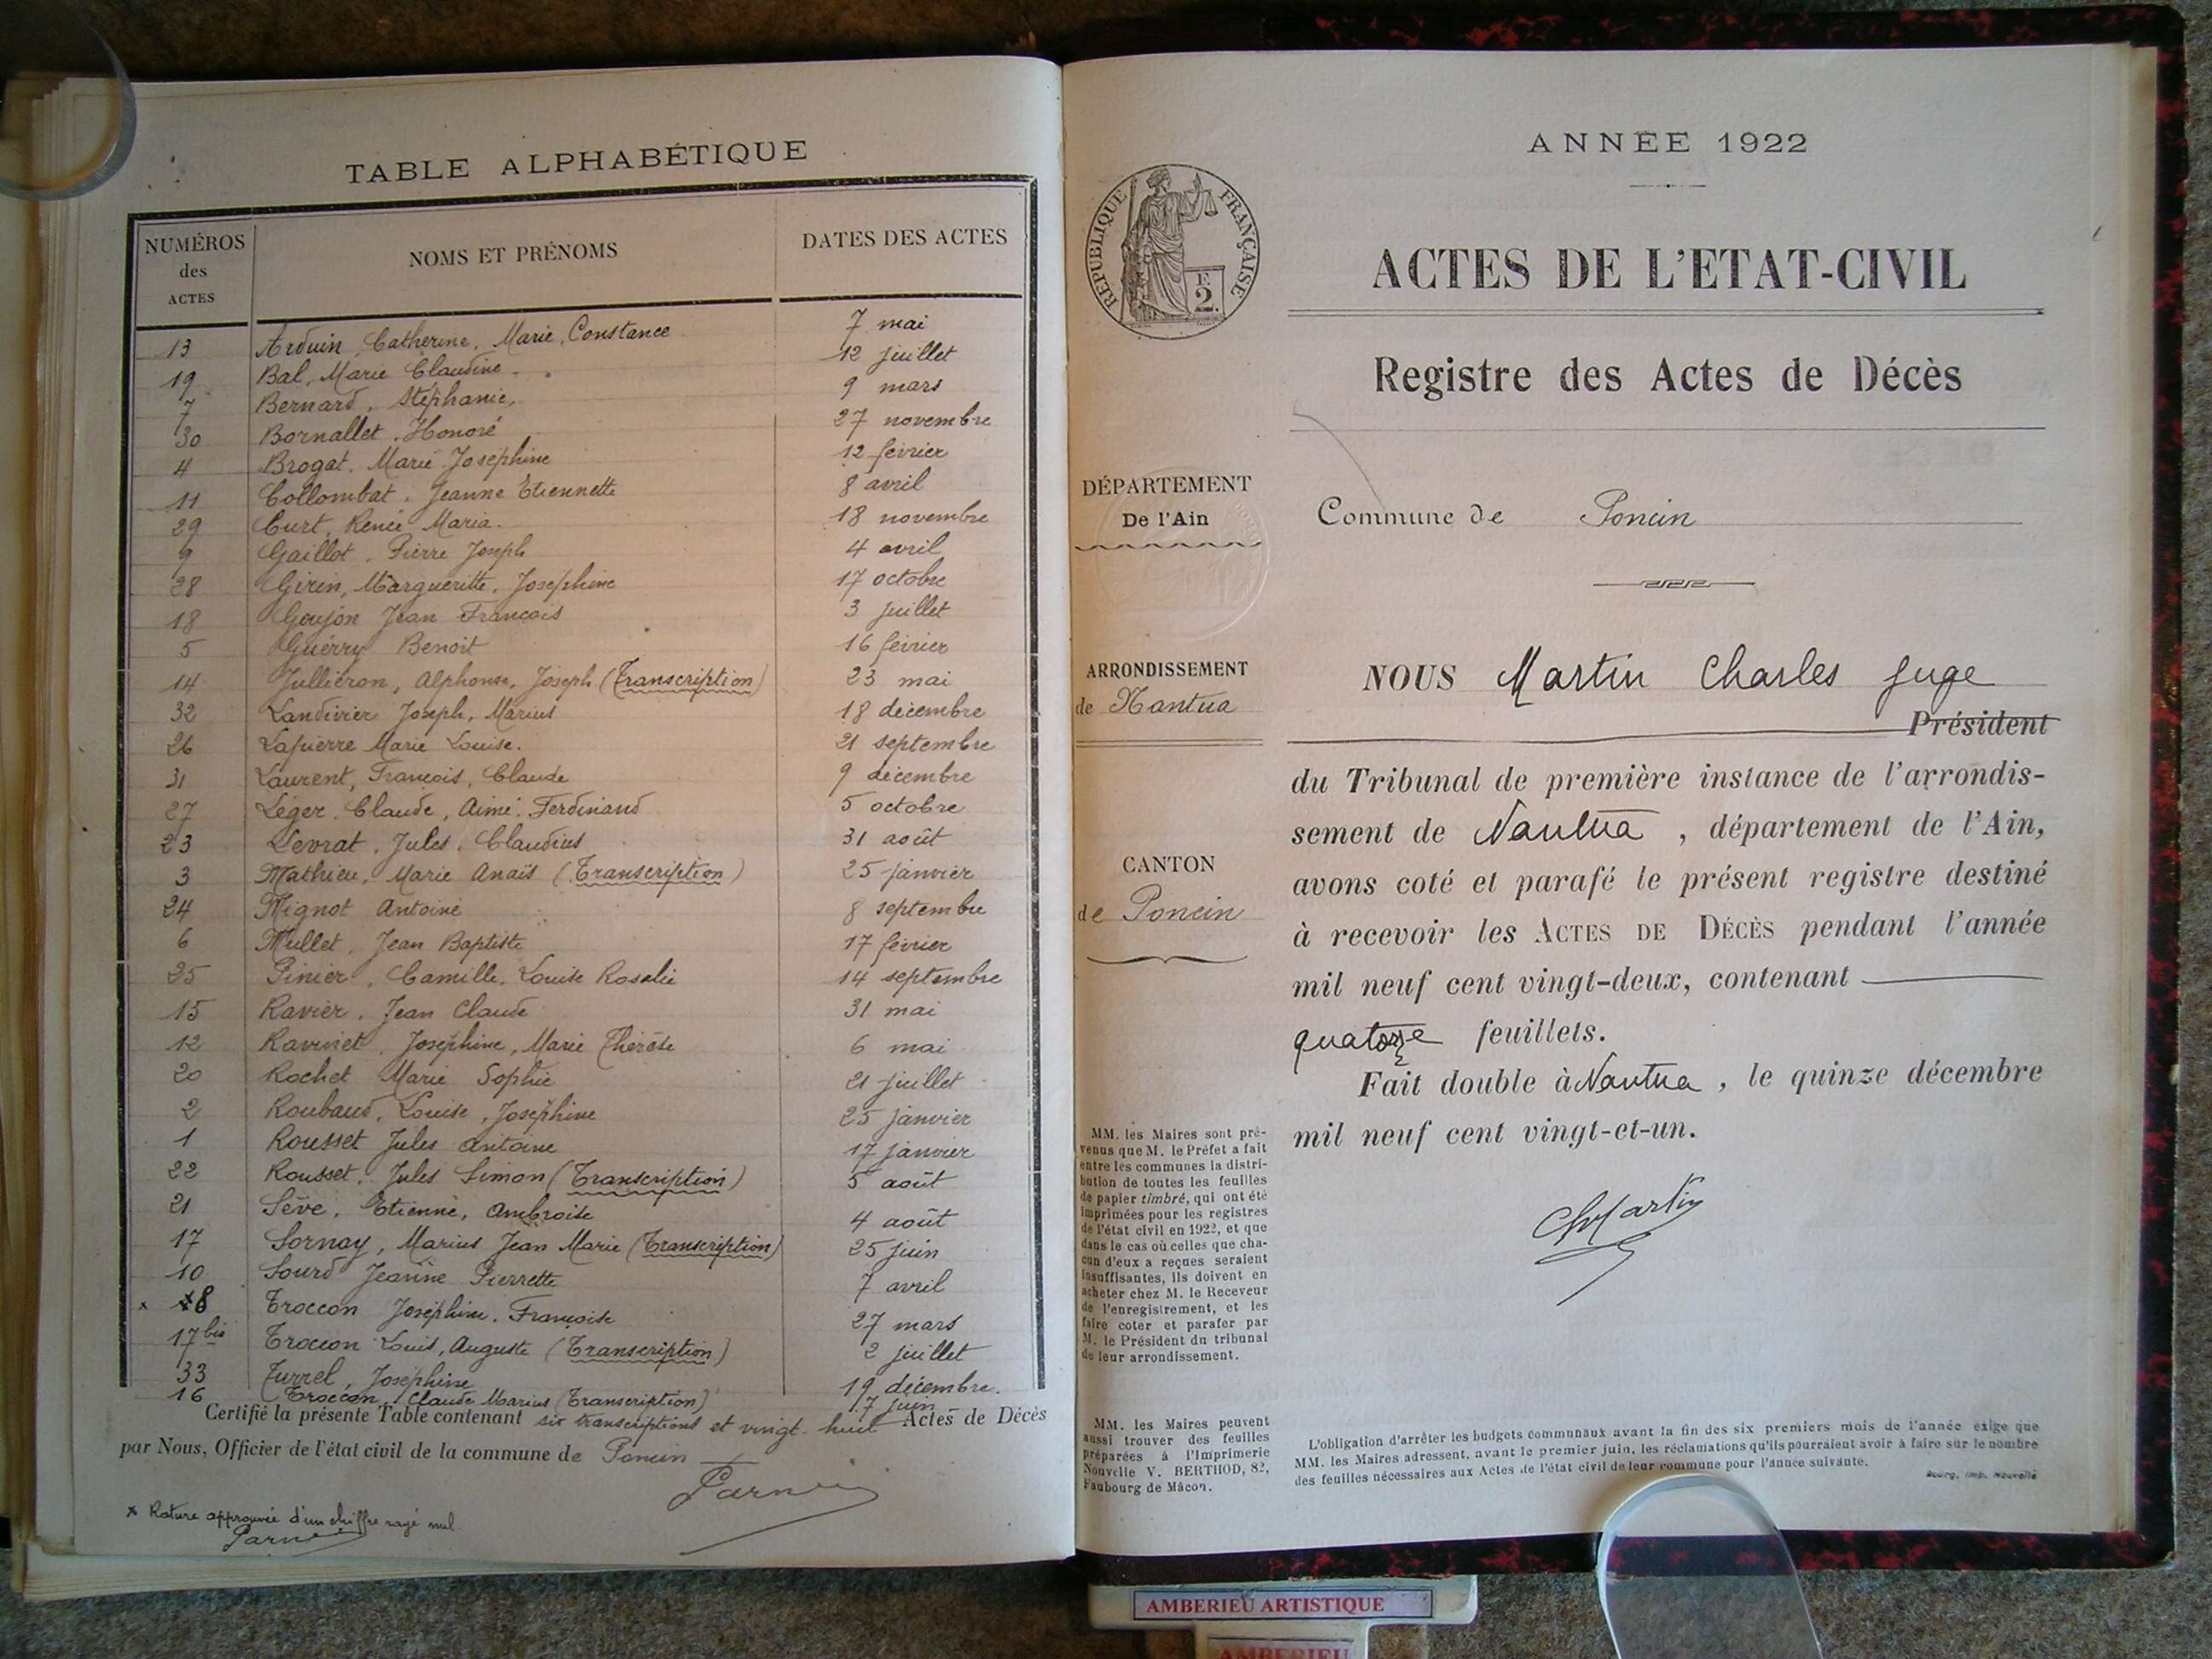 TABLE ALPHABÉTIQUE
NUMÉROS des ACTES NOMS ET PRÉNOMS DATES DES ACTES
13 Arduin, Catherine, Marie, Constance 7 mai
19 Bal, Marie Claudine 12 juillet
7 Bernard, Stéphanie, 9 mars
30 Bornallet, Honoré 27 novembre
4 Brogat, Marie Josephine 12 février
11 Collombat, Jeanne Etiennette 8 avril
29 Curt, Renée Maria 18 novembre
9 Gaillot, Pierre Joseph 4 avril
28 Giren, Margueritte, Josephine 17 octobre
18 Goujon Jean François 3 juillet
5 Guérry Benoit 16 février
14 Julliéron, Alphonse, Joseph (Transcription) 23 mai
32 Landivier Joseph, Marius 18 décembre
26 Lapierre Marie Louise. 21 septembre
31 Laurent, François, Claude 9 décembre
27 Léger, Claude, Aimé, Ferdinand 5 octobre
23 Levrat, Jules, Claudius 31 août
3 Mathieu, Marie Anaïs (Transcription) 25 janvier
24 Mignot Antoine 8 septembre
6 Mullet, Jean Baptiste 17 février
25 Pinier, Camille, Louise Rosalie 14 septembre
15 Ravier, Jean Claude 31 mai
12 Ravinet, Joséphine, Marie Thérèse 6 mai
20 Rochet Marie Sophie 21 juillet
2 Roubaud, Louise, Joséphine 25 janvier
1 Rousset Jules Antoine 17 janvier
22 Rousset, Jules Simon (Transcription) 5 août
21 Sève, Etienne, Ambroise 4 août
17 Sornay, Marius Jean Marie (Transcription) 25 juin
10 Sourd Jeanne Pierrette 7 avril
x 8 Troccon Joséphine, Françoise 27 mars
17 bis Troccon Louis, Auguste (Transcription) 2 juillet
33 Turrel, Joséphine 19 décembre.
16 Troccon, Claude Marius (Transcription) 7 juin
Certifié la présente Table contenant six transcriptions et vingt-huit Actes de Décès
par Nous, Officier de l'état civil de la commune de Poncin
x Rature approuvée d'un chiffre rayé nul.
ANNÉE 1922
RÉPUBLIQUE FRANÇAISE
F. 2.
ACTES DE L'ETAT-CIVIL
Registre des Actes de Décès
DÉPARTEMENT
De l'Ain
Commune de Poncin
ARRONDISSEMENT
de Nantua
CANTON
de Poncin
NOUS Martin Charles juge
Président
du Tribunal de première instance de l'arrondis-
sement de Nantua, département de l'Ain,
avons coté et parafé le présent registre destiné
à recevoir les ACTES DE DÉCÈS pendant l'année
mil neuf cent vingt-deux, contenant
quatorze feuillets.
Fait double à Nantua, le quinze décembre
mil neuf cent vingt-et-un.
ChMartin
MM. les Maires sont pré-
venus que M. le Préfet a fait
entre les communes la distri-
bution de toutes les feuilles
de papier timbré, qui ont été
imprimées pour les registres
de l'état civil en 1922, et que
dans le cas où celles que cha-
cun d'eux a reçues seraient
insuffisantes, ils doivent en
acheter chez M. le Receveur
de l'enregistrement, et les
faire coter et parafer par
M. le Président du tribunal
de leur arrondissement.
MM. les Maires peuvent
aussi trouver des feuilles
préparées à l'Imprimerie
Nouvelle V. BERTHOD, 82,
Faubourg de Mâcon.
L'obligation d'arrêter les budgets communaux avant la fin des six premiers mois de l'année exige que
MM. les Maires adressent, avant le premier juin, les réclamations qu'ils pourraient avoir à faire sur le nombre
des feuilles nécessaires aux Actes de l'état civil de leur commune pour l'année suivante.
Bourg, Imp. Nouvelle
AMBERIEU ARTISTIQUE
AMBERIEU